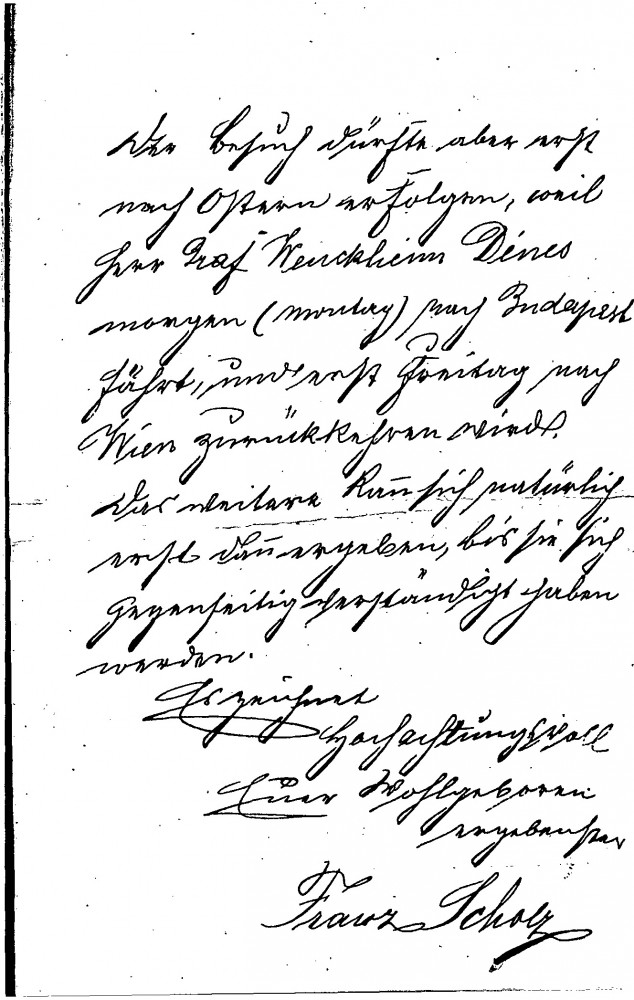 Der Besuch dürfte aber erst
nach Ostern erfolgen, weil
Herr Graf Wenckheim Dénes
morgen (Montag) nach Budapest
fährt, und erst Freitag nach
Wien zurückkehren wird.
Das weitere kan̄ sich natürlich
erst dan̄ ergeben, bis sie sich
gegenseitig verständigt haben
werden.
Es zeichnet
Hochachtungsvoll
Euer Wohlgeboren
ergebenster
Franz Scholz